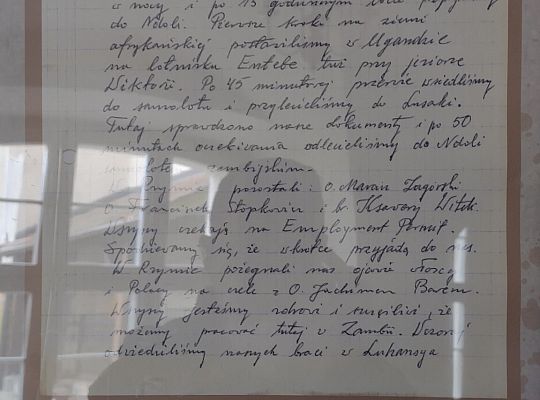 w nocy i po 13 godzinnym locie
do Ndoli. Pierwsze kroki na ziemi
afrykańskiej postawiliśmy w Ugandzie
na lotnisku Entebe tuż przy jeziorze
Wiktorii. Po 45 minutowej przerwie wsiedliśmy
do samolotu i przylecieliśmy do Lusaki.
Tutaj sprawdzono nasze dokumenty i po 50
minutach oczekiwania odlecieliśmy do Ndoli
samolotem zambijskim.
W Rzymie pozostali: o. Marian Zagórski
o. Franciszek i br. Ksawery
Wszyscy czekają na Employment Permit.
Spodziewamy się, że wkrótce przyjadą do nas.
W Rzymie pożegnali nas ojcowie włoscy
i Polacy na czele z O. Joachimem
Wszyscy jesteśmy zdrowi i szczęśliwi, że
możemy pracować tutaj w Zambii. Wczoraj
odwiedziliśmy naszych braci w